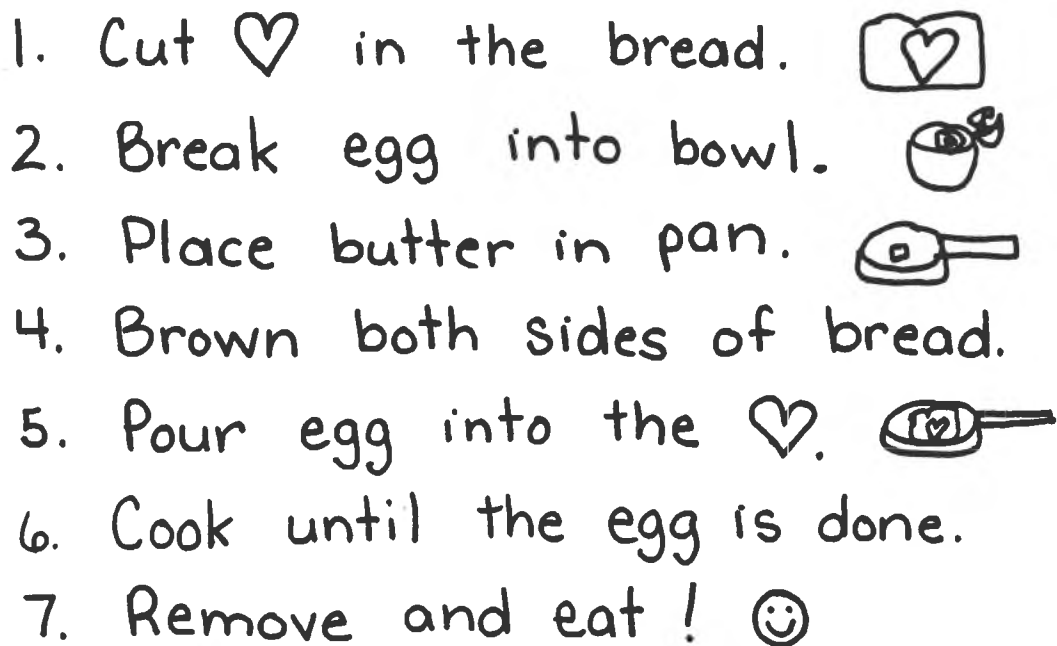 1. Cut ♡ in the bread.
2. Break egg into bowl.
3. Place butter in pan.
4. Brown both sides of bread.
5. Pour egg into the ♡.
6. Cook until the egg is done.
7. Remove and eat! ☺